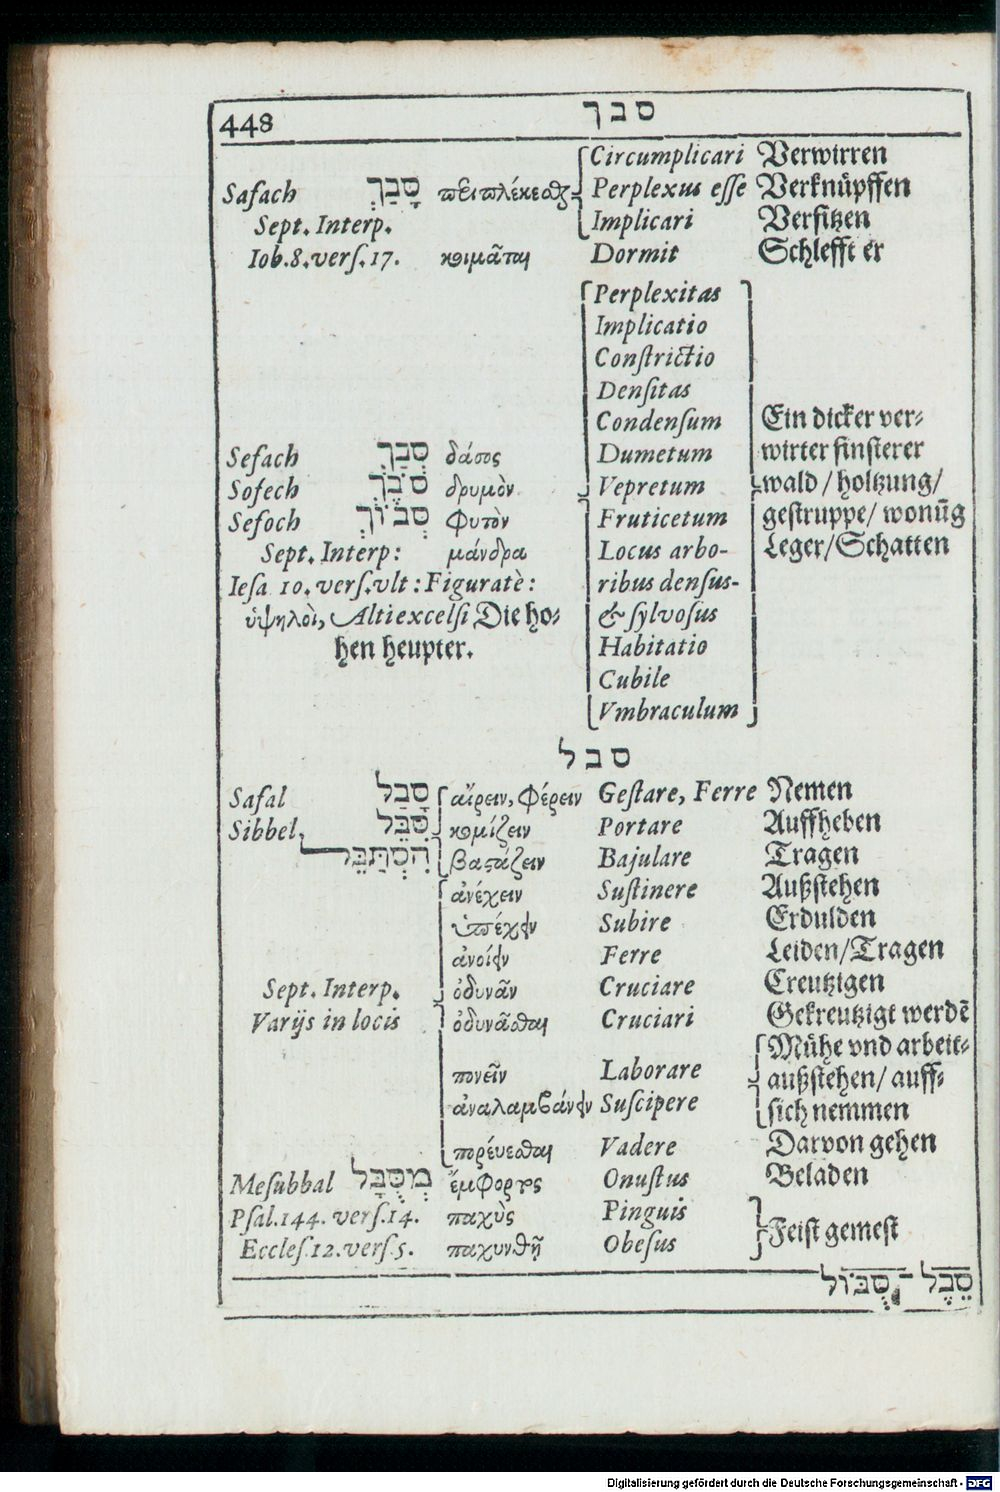 448 סבך
Circumplicari Verwirren
Safach סָבַךְ περιπλέκεσθαι Perplexus eſſe Verknüpffen
Sept. Interp. Implicari Verſitzen
Iob. 8. verſ. 17. κοιμᾶται Dormit Schlefft er
Perplexitas
Implicatio
Conſtrictio
Denſitas
Condenſum Ein dicker ver-
Sefach סְבַךְ δάσος Dumetum wirter finſterer
Sofech סֹבֶךְ δρυμὸν Vepretum wald / holtzung/
Sefoch סְבוֹךְ Φυτὸν Fruticetum geſtruppe/ wonūg
Sept. Interp: μάνδρα Locus arbo- Leger/Schatten
Ieſa 10. verſ. vlt : Figuratè : ribus denſus-
ὑψηλοὶ, Altiexcelſi Die ho- & ſylvoſus
hen heupter. Habitatio
Cubile
Vmbraculum
סבל
Safal סָבַל αἴρειν, Φέρειν Geſtare, Ferre Nemen
Sibbel, סִבֵּל κομίζειν Portare Auffheben
הִסְתַּבֵּל βαστάζειν Bajulare Tragen
ἀνέχειν Suſtinere Außſtehen
ὑπέχειν Subire Erdulden
ἀνοίειν Ferre Leiden/Tragen
Sept. Interp. ὀδυνᾶν Cruciare Creutzigen
Varijs in locis ὀδυνᾶσθαι Cruciari Gekreutzigt werdē
Mühe vnd arbeit-
πονεῖν Laborare außſtehen/ auff-
ἀναλαμβάνειν Suſcipere ſich nemmen
πορέυεσθαι Vadere Darvon gehen
Meſubbal מְסֻבָּל ἔμΦορτος Onuſtus Beladen
Pſal. 144. verſ. 14. παχὺς Pinguis
Eccleſ. 12. verſ 5. παχυνθῇ Obeſus Feiſt gemeſt
סֵבֶל - סֻבּוֹל
Digitalisierung gefördert durch die Deutsche Forschungsgemeinschaft - DFG